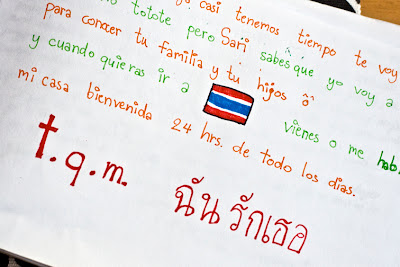 no totote pero ya casi tenemos tiempo te voy
para conocer tu familia y tu hijos ô Sari sabes que yo voy a
y cuando quieras ir a vienes o me hab
mi casa bienvenida 24 hrs. de todo los días.
t.q.m. ฉันรักเธอ